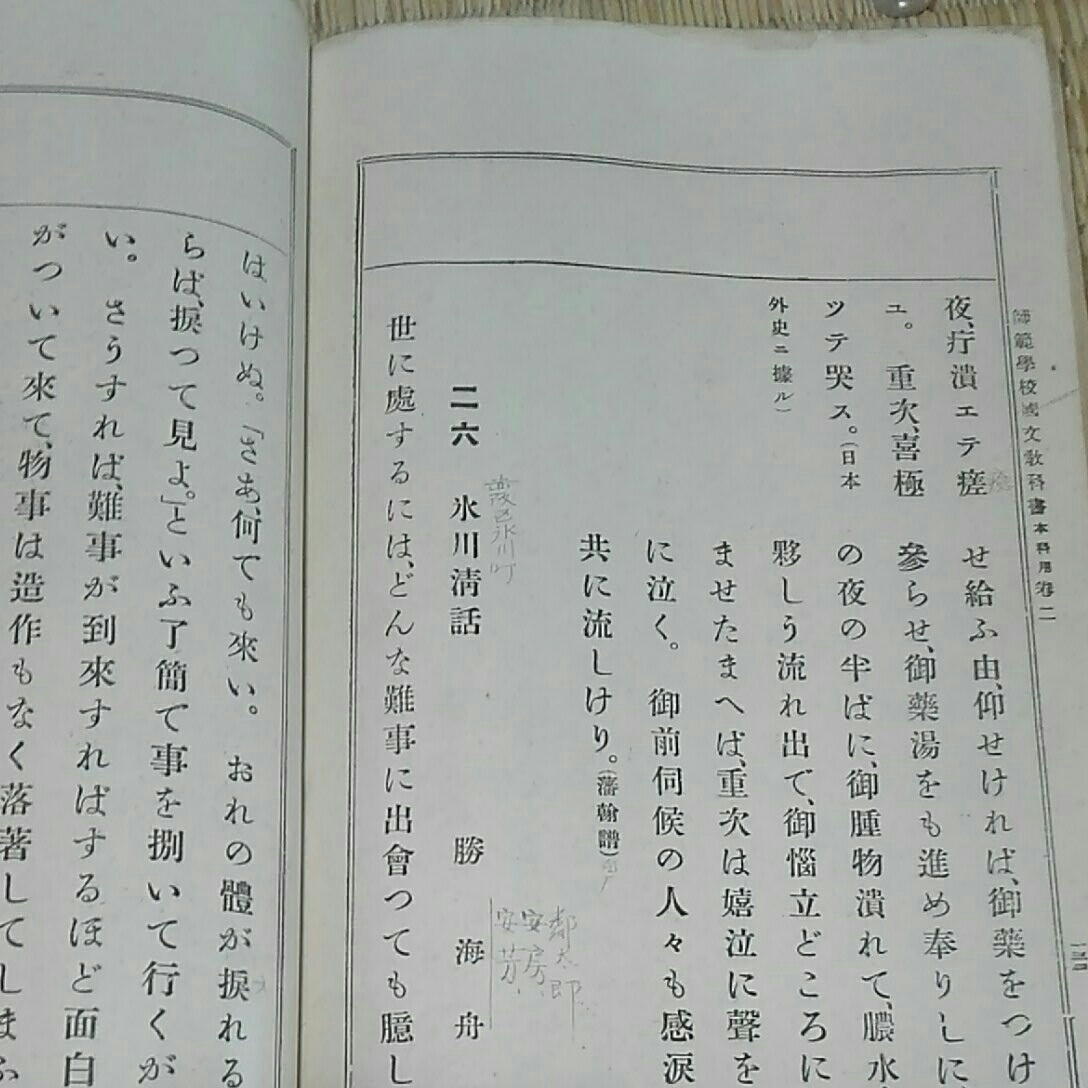 師範學校國文教科書本科用卷二
夜、疔潰エテ瘥
ユ。重次、喜極
ツテ哭ス。(日本
外史ニ據ル)
せ給ふ由、仰せければ、御藥をつけ
參らせ、御藥湯をも進め奉りしに
の夜の半ばに、御腫物潰れて、膿水
夥しう流れ出で、御惱立どころに
ませたまへば、重次は嬉泣に聲を
に泣く。御前伺候の人々も感涙
共に流しけり。(藩翰譜)
二六 氷川淸話
氷川町
勝海舟
安房
安芳
世に處するには、どんな難事に出會つても臆し
はいけぬ。「さあ、何でも來い。おれの體が捩れる
らば、捩つて見よ。」といふ了簡で事を捌いて行くが
い。さうすれば、難事が到來すればするほど面白
がついて來て、物事は造作もなく落著してしまふ